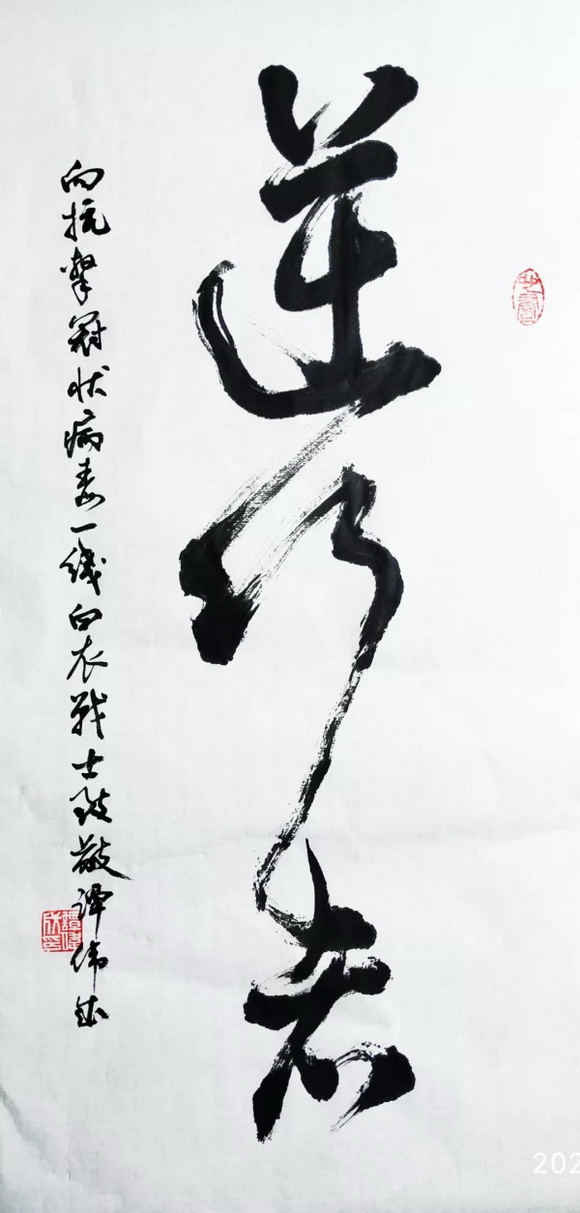 逆行者
向抗击冠状病毒一线白衣战士致敬 谭伟
202